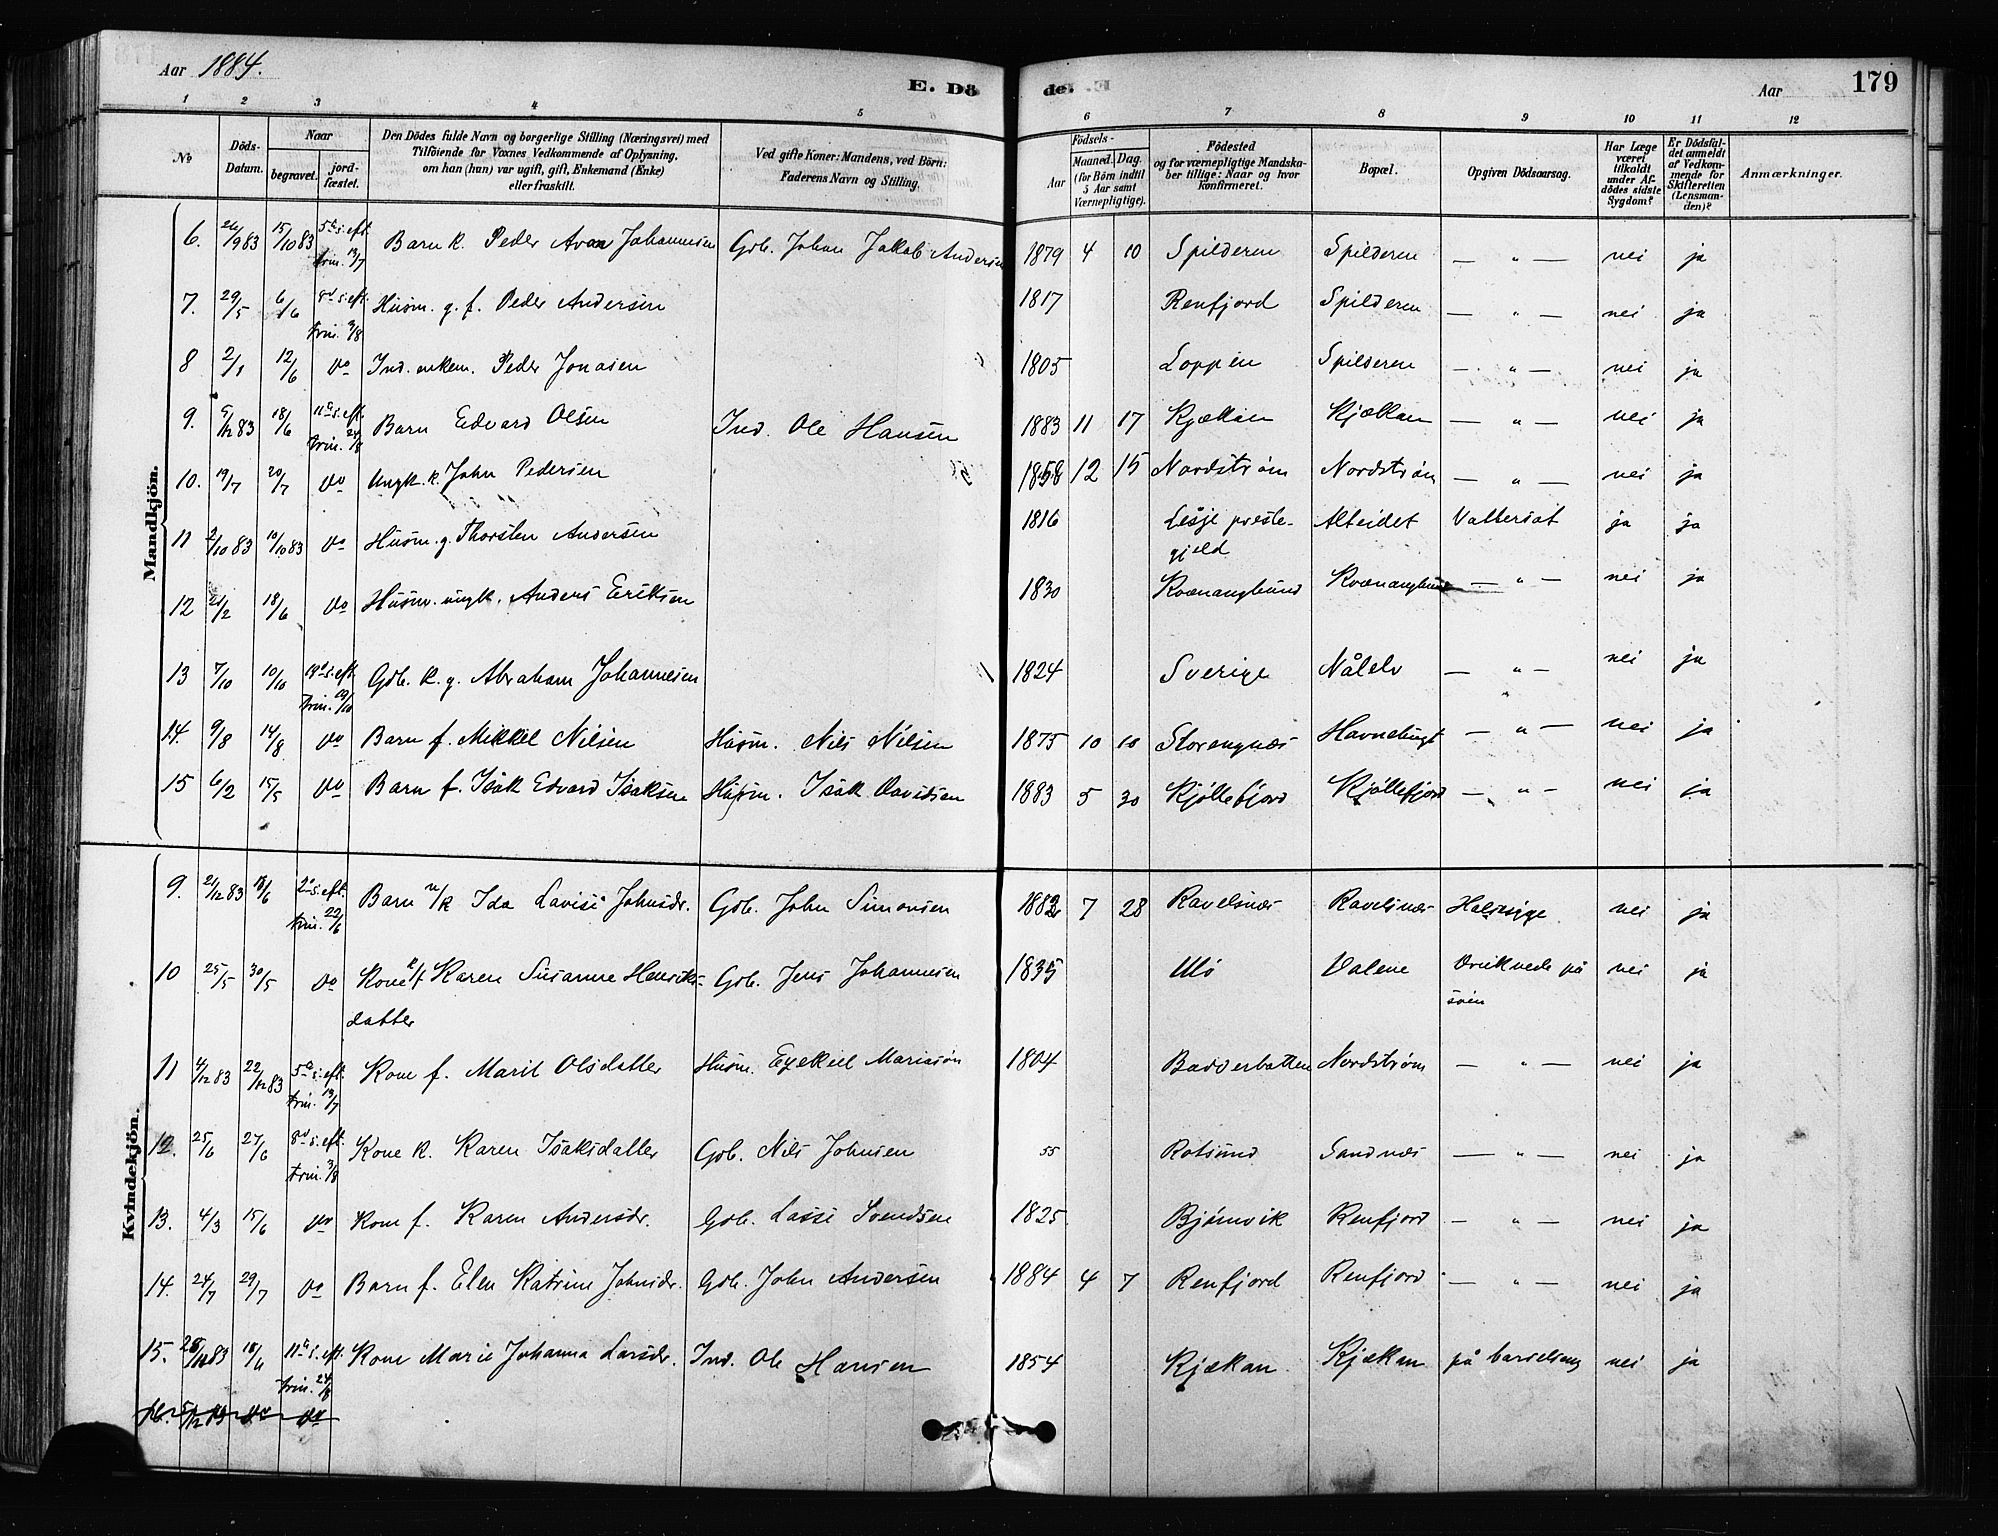 Aar 1884.
E. Dö
de. E
Aar
179
1 2 3 4 5 6 7 8 9 10 11 12
No
Döds-Datum.
Naar
begravet.
jord-fæstet.
Den Dödes fulde Navn og borgerlige Stilling (Næringsvei) med
Tilföiende for Voxnes Vedkommende af Oplysning,
om han (hun) var ugift, gift, Enkemand (Enke)
eller fraskilt.
Ved gifte Koner: Mandens, ved Börn:
Faderens Navn og Stilling.
Födsels-
Aar
Maaned. Dag.
(for Börn indtil
5 Aar samt
Værnepligtige).
Födested
og for værnepligtige Mandska-
ber tillige: Naar og hvor
konfirmeret.
Bopæl.
Opgiven Dödsaarsag.
Har Læge
været
tilkaldt
under Af-
dödes sidste
Sygdom?
Er Dödsfal-
det anmeldt
af Vedkom-
mende for
Skifteretten
(Lensman-
den)?
Anmærkninger.
Mandkjön.
6. 26/9 83 15/10 83 5te s. eft. trin. 13/7 Barn k. Peder Johannesen Gdb. Johan Jakob Andersen 1879 4 10 Spilderen Spilderen — " — nei ja
7. 29/5 6/6 8d s. eft. trin. 3/8 Husm. g. f. Peder Andersen 1817 Renfjord Spilderen — " — nei ja
8 2/1 12/6 do Ind. enkem. Peder Jonasen 1805 Loppen Spilderen — " — nei ja
9. 5/12 83 18/6 11te s. eft. trin. 24/8 Barn Edvard Olsen Ind. Ole Hansen 1883 11 17 Kjækan Kjækan — " — nei ja
10. 19/7 20/7 do Ungk. k. John Pedersen 1858 12 15 Nordstrøm Nordstrøm — " — nei ja
11 2/10 83 10/10 83 do Husm. g. Thorsten Andersen 1816 Lesje preste-
gjeld Alteidet Vattersot ja ja
12 21/2 18/6 do Husm. ungk. Anders Eriksen 1830 Kvænangbund Kvænangbund — " — nei ja
13 7/10 10/10 19d s. eft. trin. 19/10 Gdb. k. g. Abraham Johannesen 1824 Sverige Nålelv — " — nei ja
14. 9/8 14/8 do Barn f. Mikkel Nilsen Husm. Nils Nilsen 1875 10 10 Storengnæs Havnebugt — " — nei ja
15 6/2 15/5 do Barn f. Isak Edvard Isaksen Husm. Isak Davidsen 1883 5 30 Kjøllefjord Kjøllefjord — " — nei ja
Kvindekjön.
9. 21/12 83 18/6 2d s. eft. trin. 22/6 Barn n/k Ida Lovise Johnsdr. Gdb. John Simonsen 1882 7 28 Ravelsnæs Ravelsnæs Halssyge. nei ja
10 25/5 30/5 do Kone k/f Karen Susanne Henriks-
datter Gdb. Jens Johannesen 1835 Ulø Valene Druknede på
søen nei ja
11 4/12 83 22/12 83 5te s. eft. trin. 13/7 Kone f. Marit Olsdatter Husm. Ezekiel Mariasøn 1804 Badderbotten Nordstrøm — " — nei ja
12. 25/6 27/6 8d s. eft. trin. 3/8 Kone k. Karen Isaksdatter Gdb. Nils Johnsen 55 Rotsund Sandnæs — " — nei ja
13. 4/3 15/6 do Kone f. Karen Andersdr. Gdb. Lasse Svendsen 1825 Bjørnvik Renfjord — " — nei ja
14. 24/7 29/7 do Barn f. Elen Katrine Johnsdr. Gdb. John Andersen 1884 4 7 Renfjord Renfjord — " — nei ja
15. 28/11 83 18/6 11te s. eft. trin. 24/8 Kone Marie Johanna Larsdr. Ind. Ole Hansen 1854 Kjækan Kjækan på barselseng nei ja
16. 5/12 do do